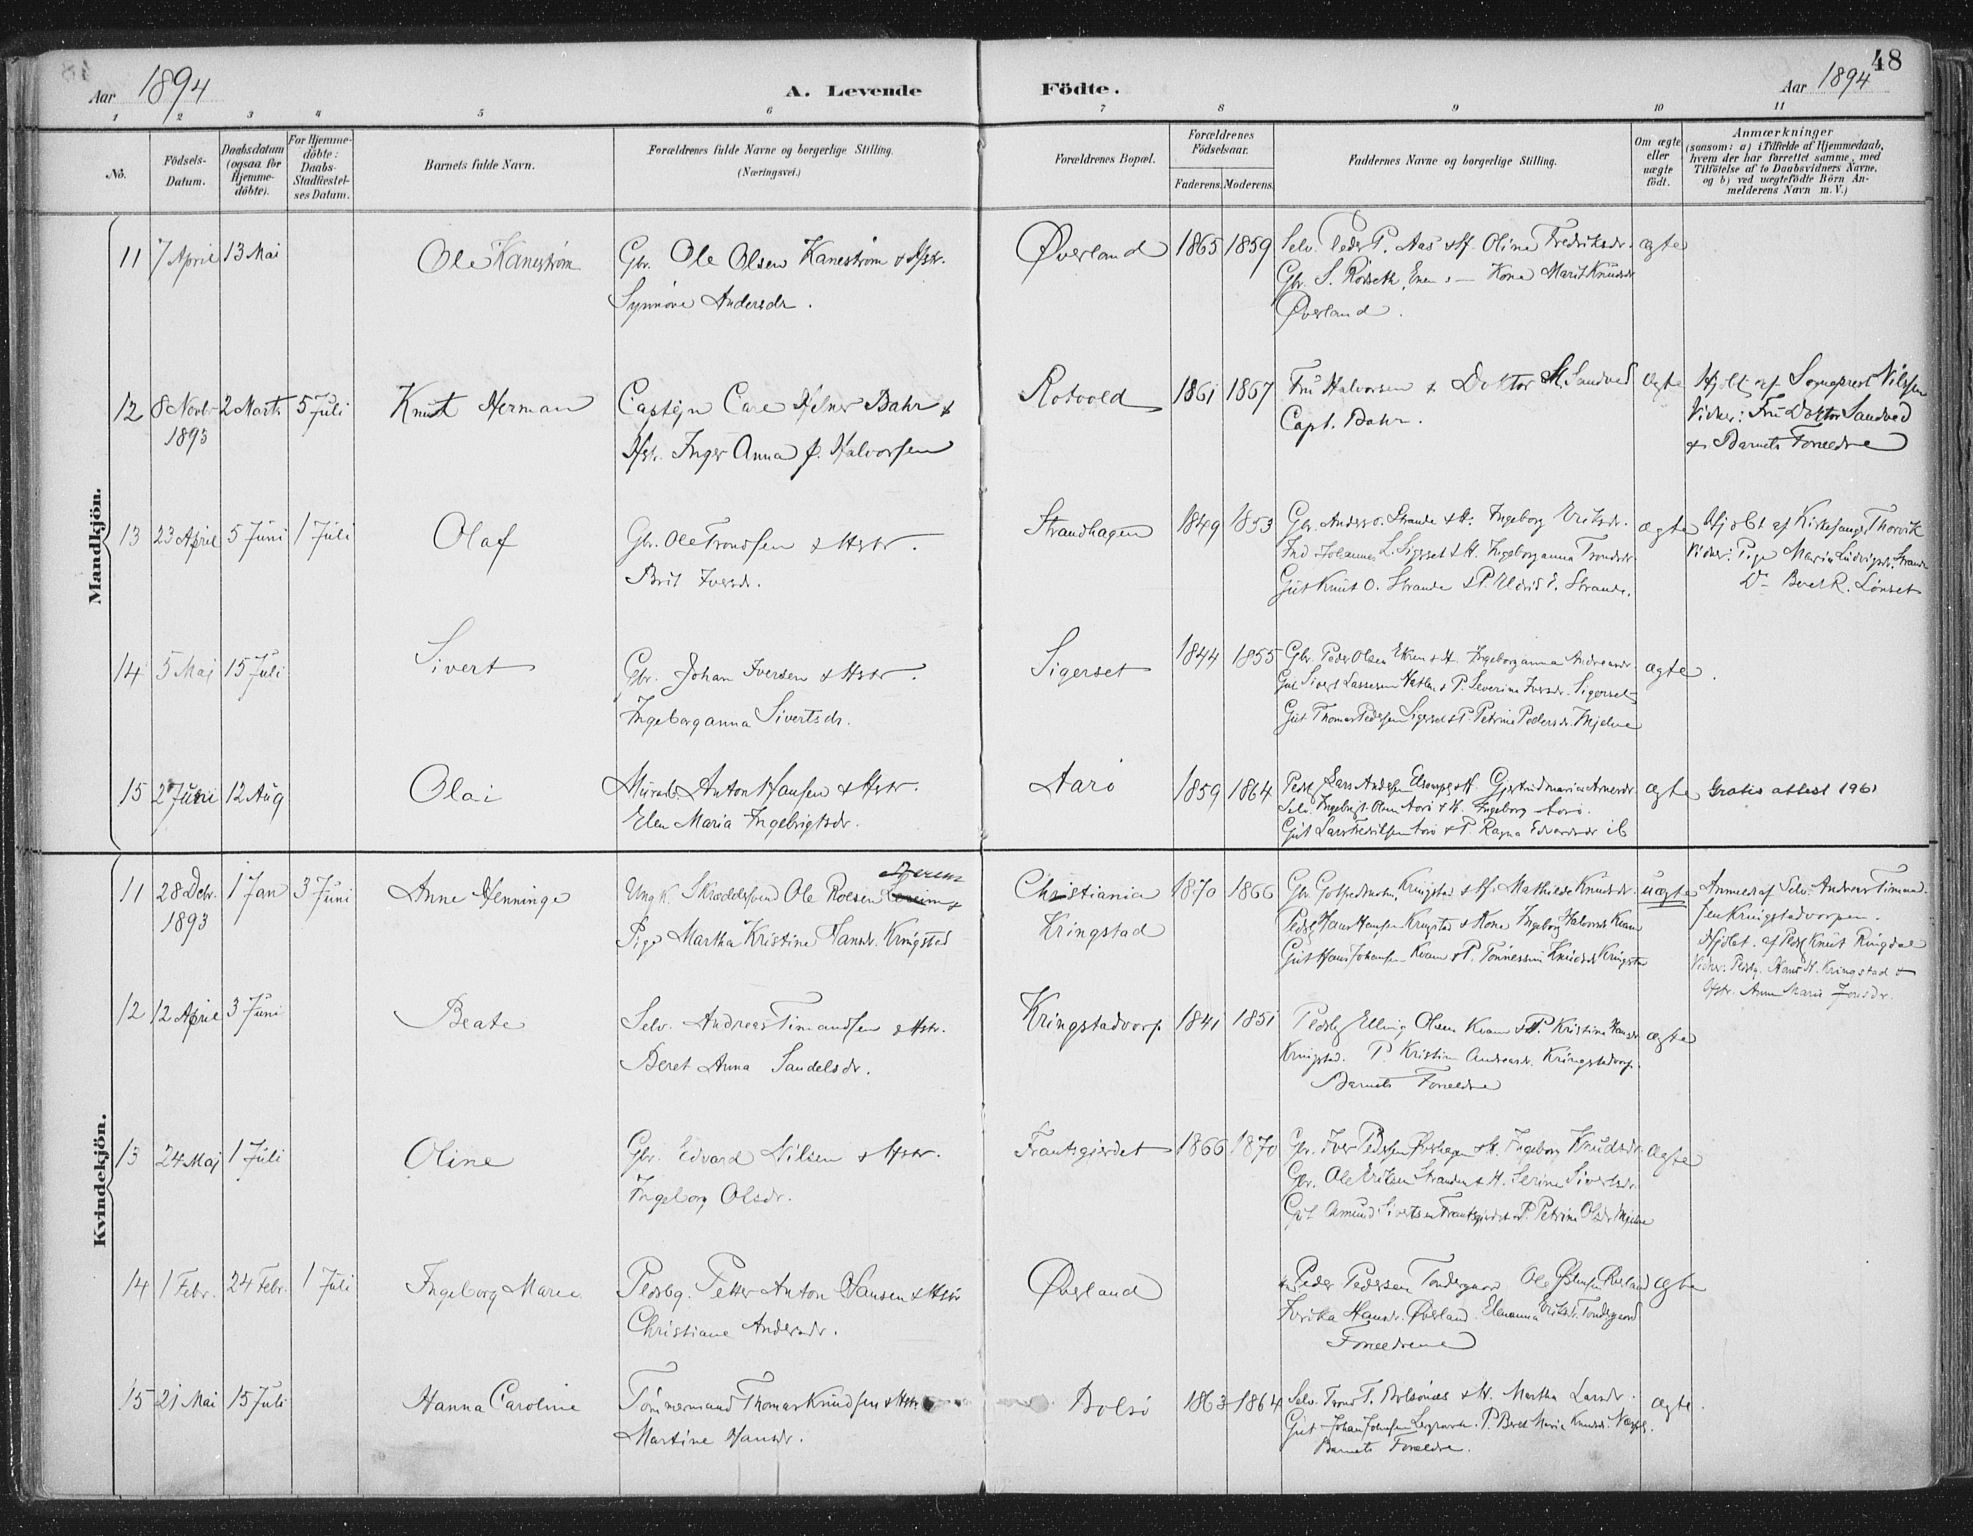 48
Aar 1894
A. Levende Födte.
Aar 1894
1 2 3 4 5 6 7 8 9 10 11
No.
Födsels-Datum.
Daabsdatum (ogsaa for Hjemmedöbte).
For Hjemmedöbte: Daabs-Stadfæstelses Datum.
Barnets fulde Navn.
Forældrenes fulde Navne og borgerlige Stilling.
(Næringsvei.)
Forældrenes Bopæl.
Forældrenes Födselsaar.
Faderens. Moderens.
Faddernes Navne og borgerlige Stilling.
Om ægte eller uægte födt.
Anmærkninger
(saasom: a) i Tilfælde af Hjemmedaab, hvem der har forrettet samme, med Tilföielse af to Daabsvidners Navne, og b) ved uægtefödte Börn Anmelderens Navn m. V.)
Mandkjön.
11 7 April 13 Mai Ole Kanestrøm Gbr. Ole Olsen Kanestrøm & Hstr. Øverland 1865 1859 Selv. Peder P. Aas & H. Oline Fredriksdr. ægte
Synnöve Andersdr. Gbr. S. Rödseth, Enen, Kone Marit Knudsdr
Øverland.
12 8 Novbr 1893 2 Marts 5 Juli Knut Herman Captejn Care Hilmer Bahr & Rotvold 1861 1867 Fru Halvorsen & Doktor Sandved ægte Hjdbt af Sogneprest Nilssen
Hstr. Inger Anna f. Halvorsen Capt. Bahr. Vidner: Fru Doktor Sandved
& Barnets Forældre
13 23 April 5 Juni 1 Juli Olaf Gbr. Ole Trondsen & Hstr. Strandhagen 1849 1853 Gbr. Anders O. Strande & H. Ingeborg Eriksdr. ægte Hjdbt af Kirkesanger Thorvik
Brit Iversdr. Johannes L. Sigerset & H. Ingeborganna Trondsdr Vidner: Pige Maria Ludvigsdr. Strande
Gut Knut O. Strande & P. Eldrid E. Strande. Do Beret K. Lönset
14 5 Maj 15 Juli Sivert Gbr. Johan Iversen & Hstr. Sigerset 1844 1855 Gbr. Peder Olsen Ekren & H. Ingeborganna Andreasdr ægte.
Ingeborganna Sivertsdr. Gut Sivert Lassesen Hatlen & P. Severine Iversdr. Sigerset
Gut Thomas Pedersen Sigerset & P. Petrine Pedersdr. Mjelve
15 2 Juni 12 Aug Olai Murmb. Anton Hansen & Hstr. Aarö 1859 1864 Lars Andersen & H. Gjertrudmaria Arnesdr ægte Gratis attest 1961
Elen Maria Ingebrigtsdr. Selv. Ingebrigt Olsen Aarö & H. Ingeborg Aarö.
Gut Lars Fredriksen Aarö & P. Ragna Edvardsdr ib
Kvindekjön.
11 28 Debr. 1893 1 Jan 3 Juni Anne Henninge Ungk. Skræddersvend Ole Roesen Christiania 1870 1866 Gbr. Kringstad & H. Mathilde Knutsdr. uægte Anmeld af Selv. Andreas Timand-
Pige Martha Kristine Hansdr. Kringstad Kringstad Hans Hansen Kringstad & Kone Ingeborg Halvorsdr Kvam sen Kringstadvorpen.
Gut Hans Johansen Kvam & P. Tönnesine Knudsdr Kringstad Hjdbt. af Knut Ringdal
Vidner: Hans H. Kringstad &
Hstr. Anne Marie Jonsdr.
12 12 April 3 Juni Beate Selv. Andreas Timandsen & Hstr. Kringstadvorp. 1841 1851 Elling Olsen Kvam & P. Kristine Hansdr ægte
Beret Anna Sandelsdr. Kringstad. P. Kristine Andreasdr. Kringstadvorp.
Barnets Forældre
13 24 Maj 1 Juli Oline Gbr. Edvard Nilsen & Hstr. Frantsgjerdet 1866 1870 Gbr. Iver Pedersen & H. Ingeborg Knudsdr. ægte
Ingeborg Olsdr. Gbr. Ole Eriksen Stranden & H. Serine Sivertsdr.
Gut Amund Sivertsen Frantsgjerdet & P. Petrine Olsdr Mjelve
14 1 Febr. 24 Febr. 1 Juli Ingeborg Marie Petter Anton Hansen & Hstr Øverland Peder Pedersen Tondergaard Ole Øverland ægte
Christiane Andersdr. Hansdr. Øverland. Elenanna Eriksdr. Tondergaard
Forældrene
15 21 Mai 15 Juli Hanna Caroline Tömmermand Thomas Knudsen & Hstr Bolsö 1863 1864 Selv. Trond T. Bolsönes & H. Martha Larsdr. ægte.
Martine Hansdr. Gut Johan Johnsen P. Beret Marie Knudsdr.
Barnets Forældre.